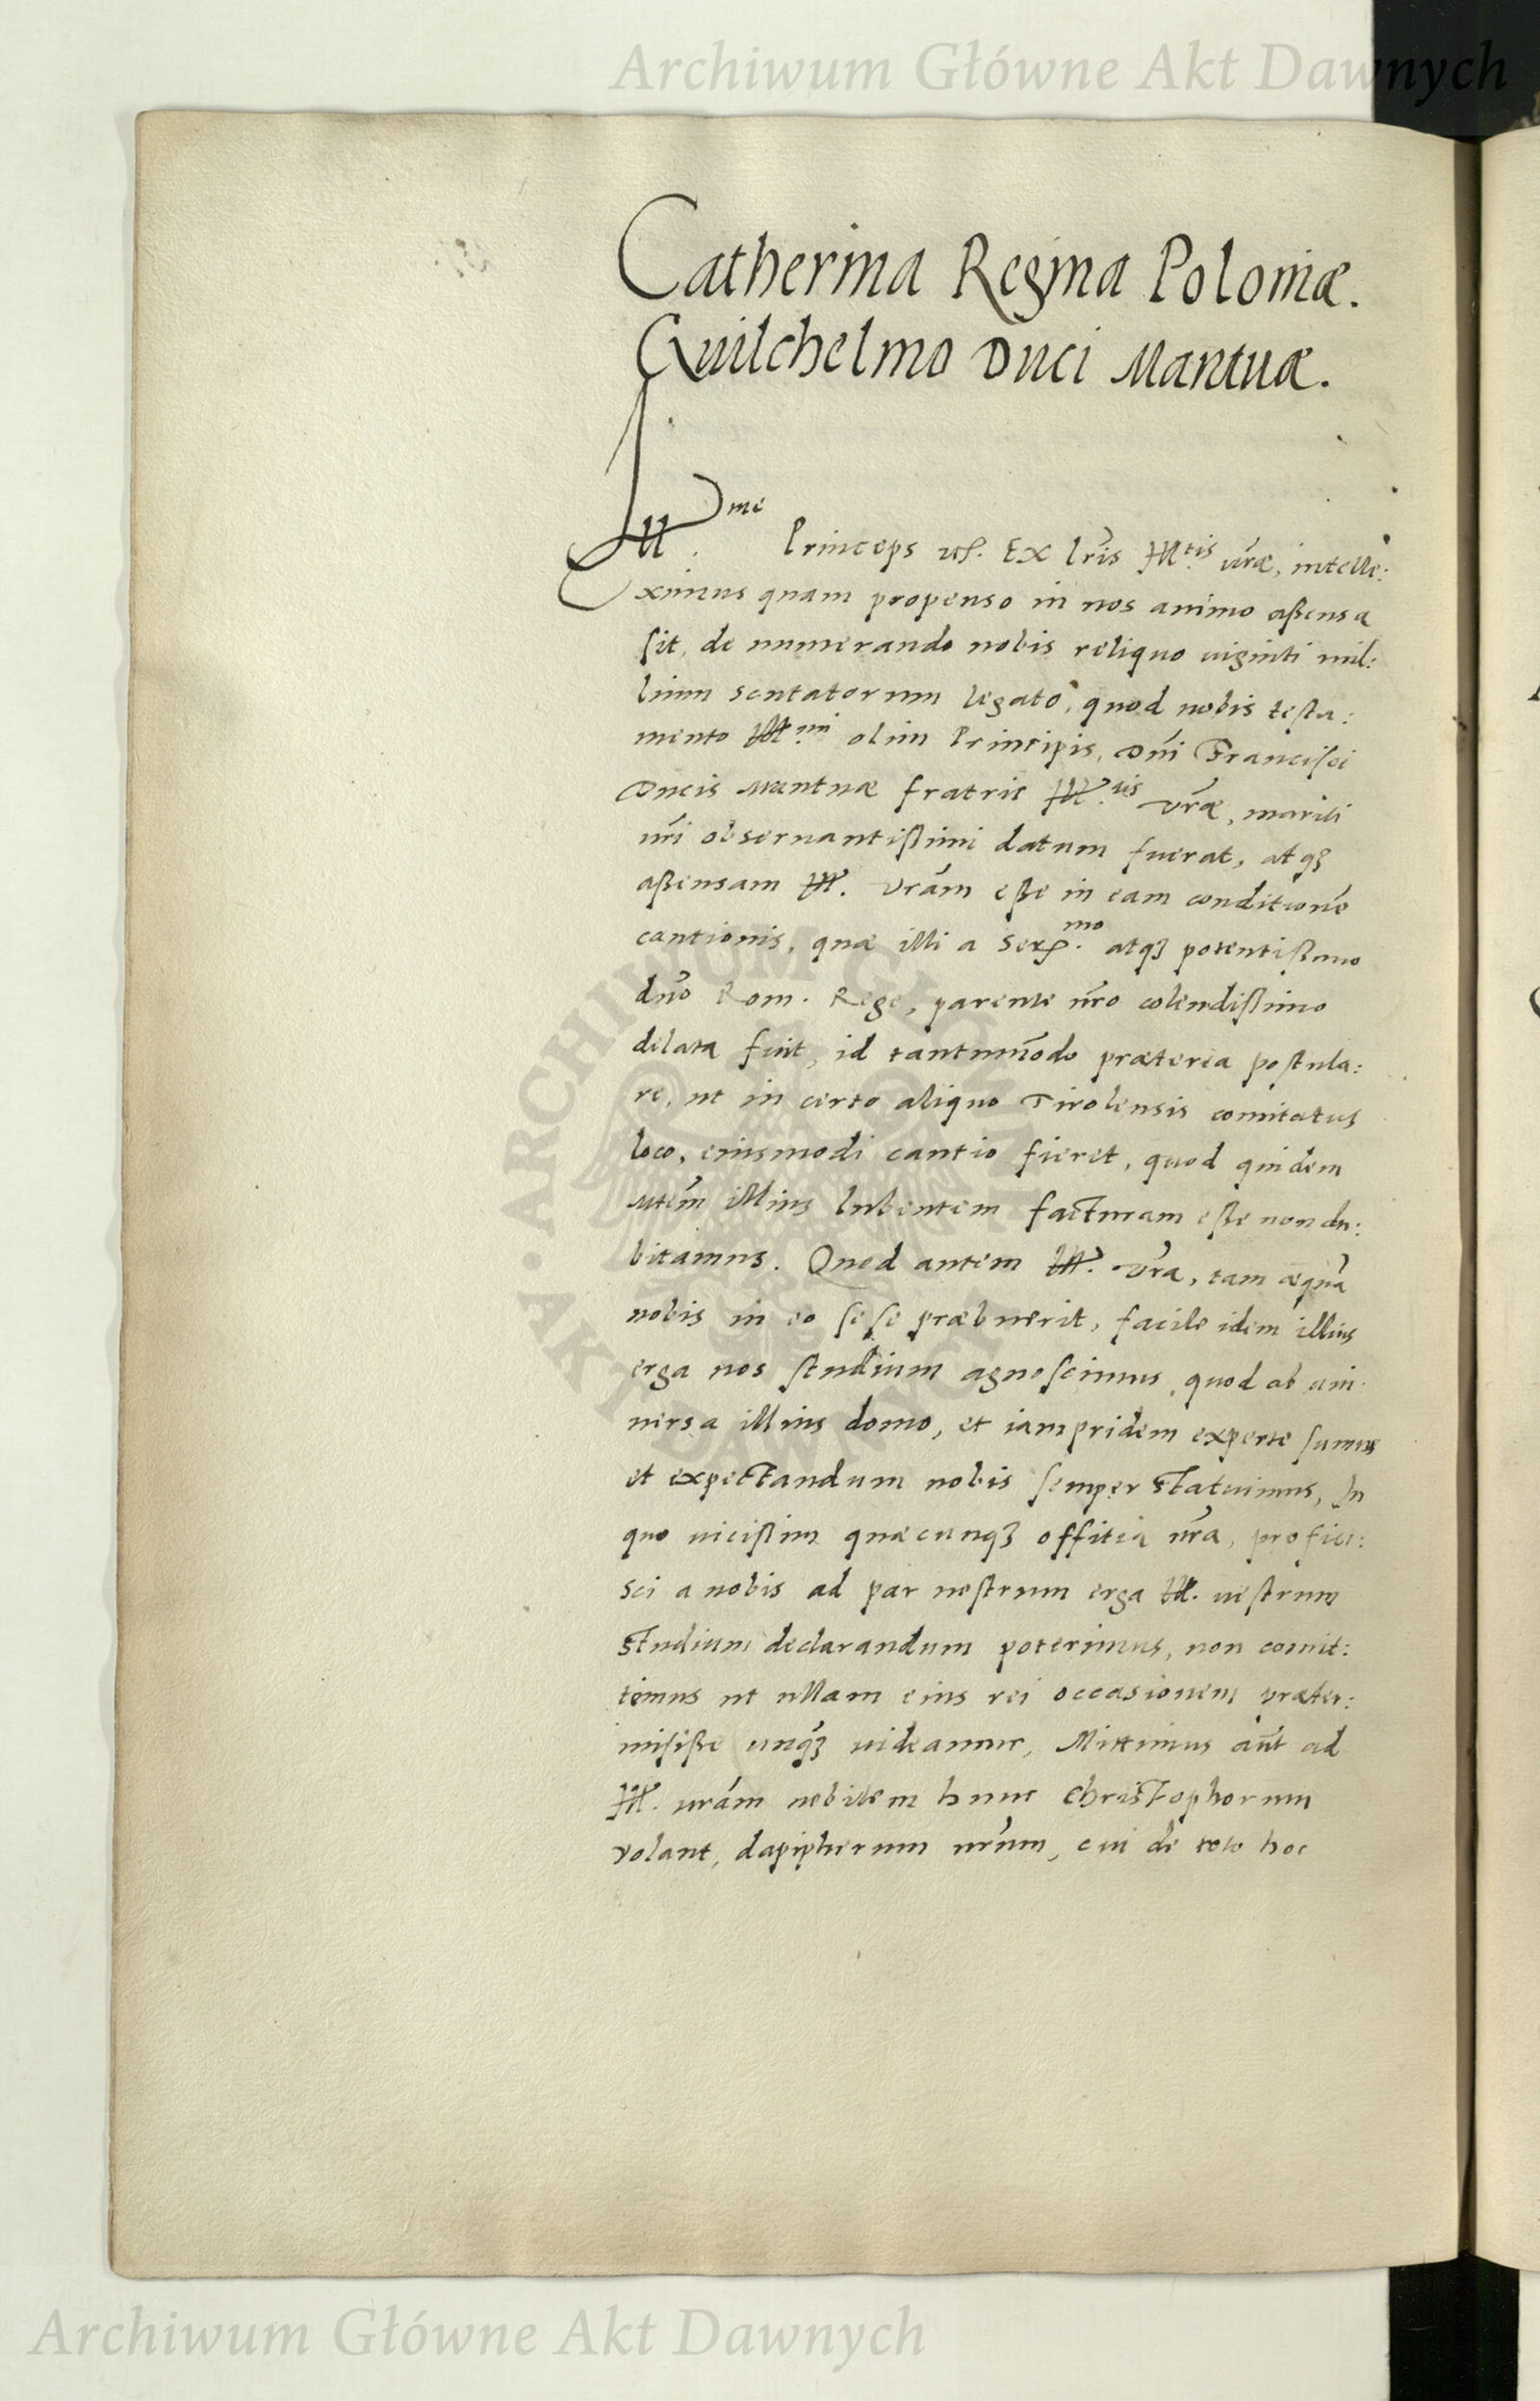 Archiwum Główne Akt Dawnych
Catherina Regina Poloniæ.
Guilchelmo Duci Mantuæ.
Ill. me Princeps etc. Ex lr̃is Ill.tis vr̃æ, intelle:
ximus quam propenso in nos animo aßensa
sit, de numerando nobis reliquo viginti mil:
lium scutatorum legato, quod nobis testa:
mento Ill.mi olim Principis, Dñi Francisci
Ducis Mantuæ fratris Ill.tis vr̃æ, mariti
nr̃i obseruantißimi datum fuerat, atq3
aßensam Ill. vrãm eße in eam conditionẽ
cautionis, quæ illi a Ser.mo atq3 potentißimo
dño Rom. Rege, parente nr̃o colendißimo
delata fuit, id tantum̃odo præterea postula:
re, ut in certo aliquo Tirolensis comitatus
loco, eiusmodi cautio fieret, quod quidem
Mtem̃ illius lubentem facturam eße non du:
bitamus. Quod autem Ill. vr̃a, tam æquã
nobis in eo sese præbuerit, facile idem illius
erga nos studium agnoscimus, quod ab uni
uersa illius domo, et iampridem experte sumus
et expectandum nobis semper statuimus, In
quo vicißim quæcunq3 offitia nr̃a, profici:
sci a nobis ad par nostrum erga Ill. vestrum
studium declarandum poterimus, non comit:
temus ut ullam eius rei occasionem præter:
misiße unq̃3 uideamur, Mittimus aũt ad
Ill. vrãm nobilem hunc Christophorum
volant, dapipherum nrũm, cui de toto hoc
ARCHIWUM GŁÓWNE AKT DAWNYCH
Archiwum Główne Akt Dawnych